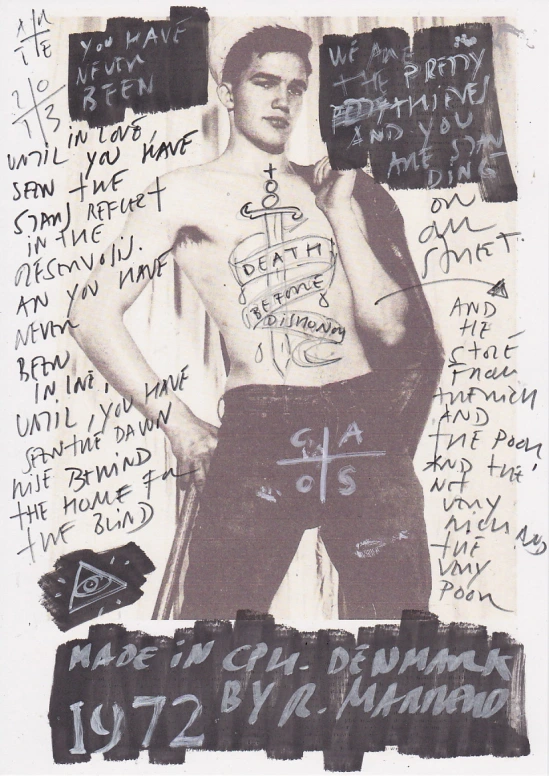 2 0
1 3
YOU HAVE
NEVER
BEEN
IN LOVE,
UNTIL YOU HAVE
SEEN THE
STARS REFLECT
IN THE
RESERVOIRS.
AN YOU HAVE
NEVER
BEEN
IN LOVE,
UNTIL, YOU HAVE
SEEN THE DAWN
RISE BEHIND
THE HOME FOR
THE BLIND
WE ARE
THE PRETTY
THIEVES
AND YOU
ARE STAN
DING
ON
OUR
STREET.
AND
HE
STOLE
FROM
THE RICH
AND
THE POOR
AND THE
NOT
VERY
RICH AND
THE
VERY
POOR
DEATH
BEFORE
DISHONOR
C A
O S
MADE IN CPH. DENMARK
1972 BY R.